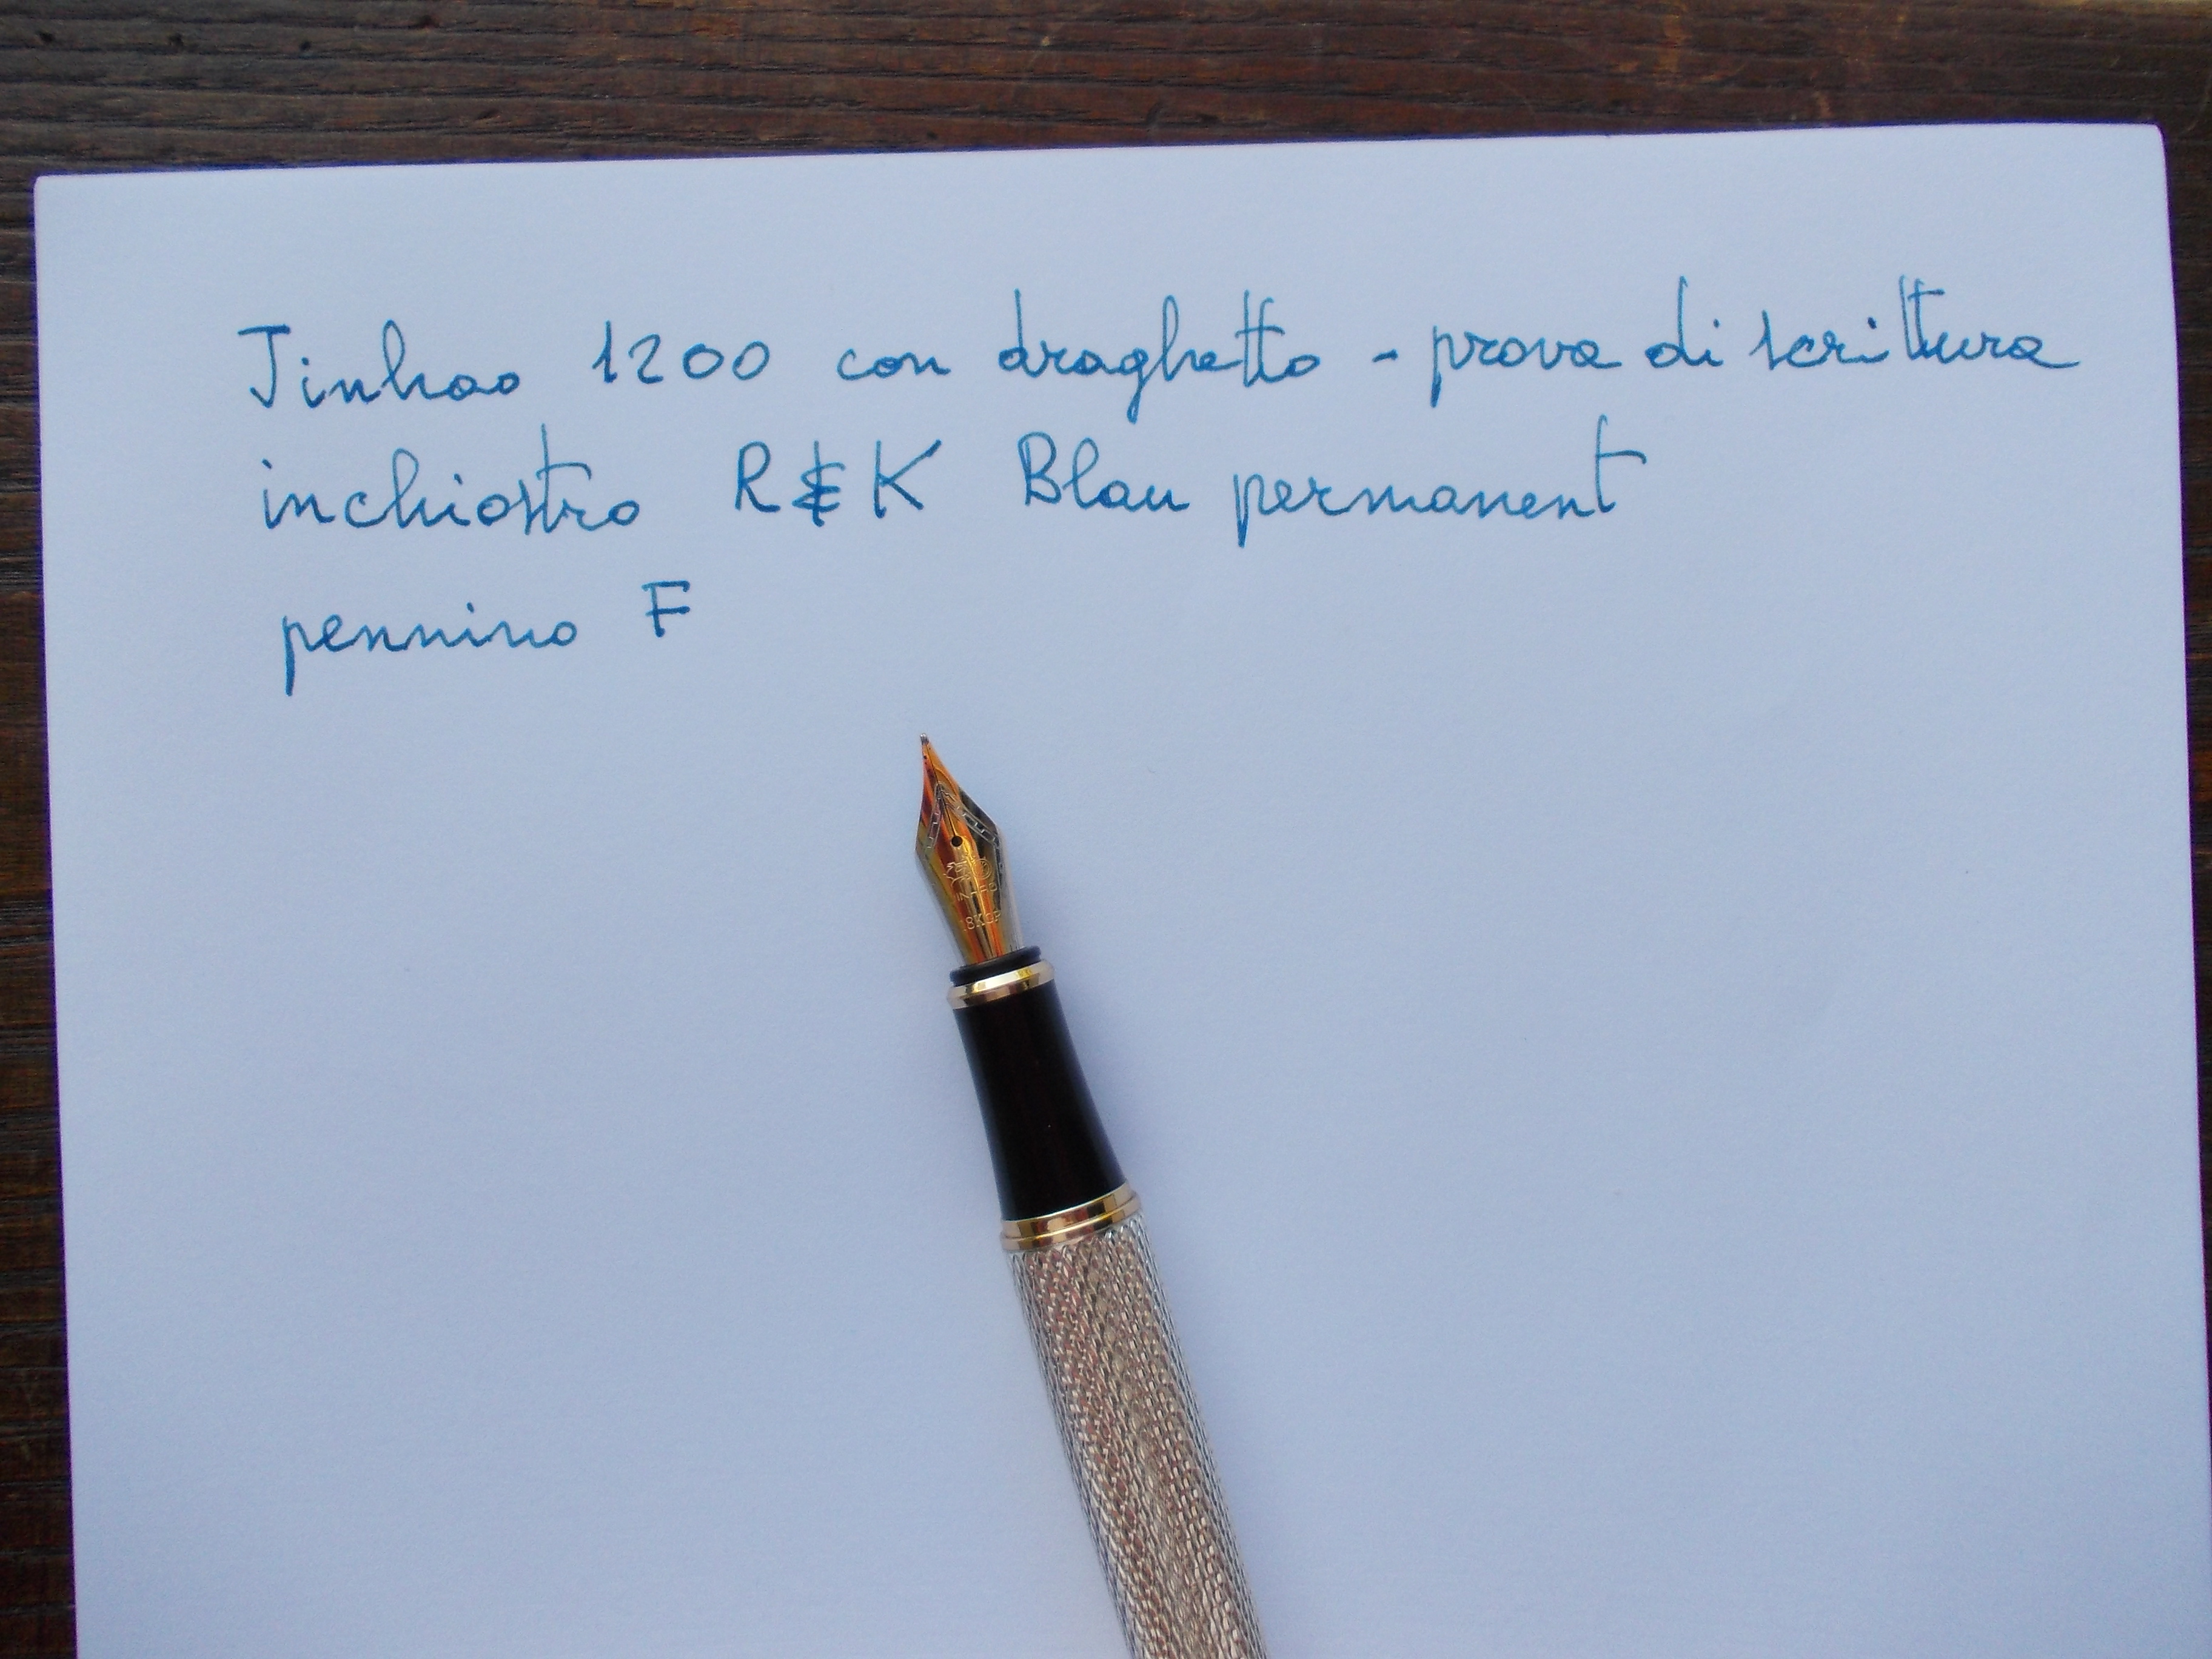 Jinhao 1200 con draghetto - prova di scrittura
inchiostro R&K Blau permanent
pennino F
18KGP